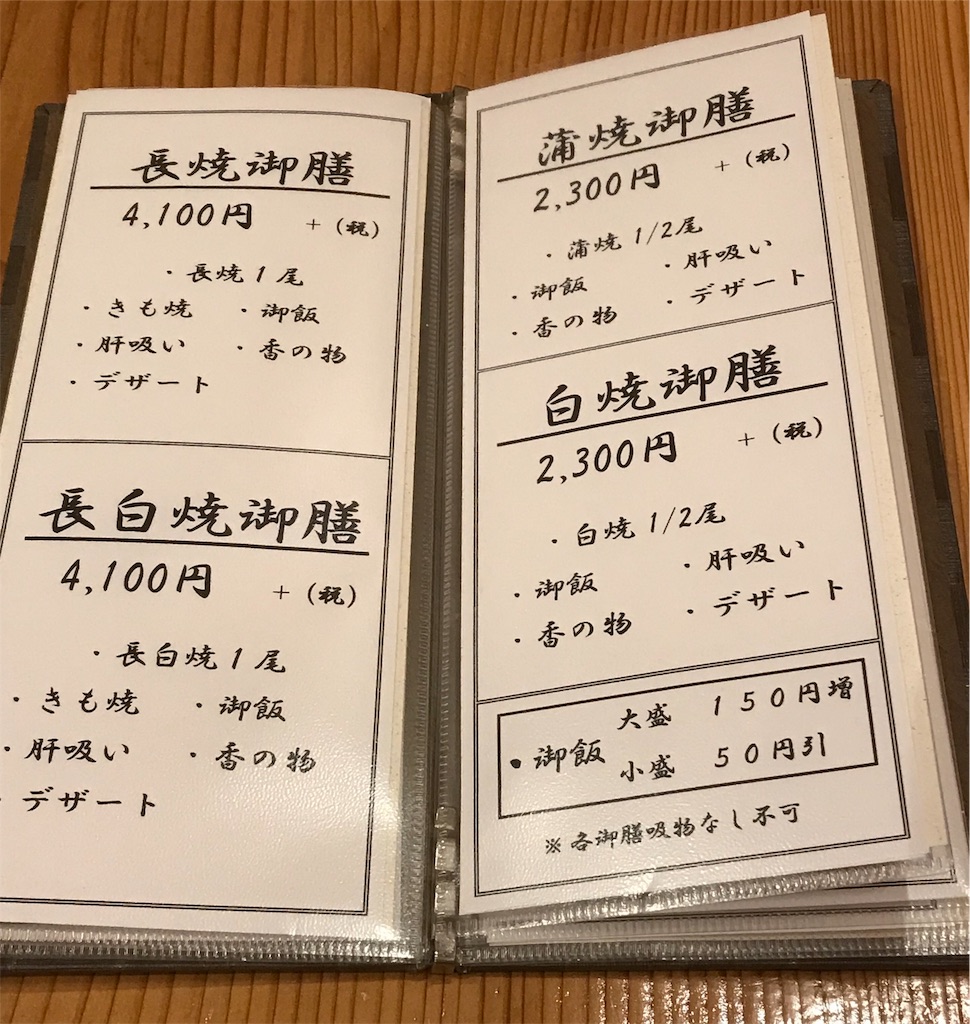 長焼御膳
4,100円 +(税)
・長焼1尾
・きも焼 ・御飯
・肝吸い ・香の物
・デザート
長白焼御膳
4,100円 +(税)
・長白焼1尾
・きも焼 ・御飯
・肝吸い ・香の物
・デザート
蒲焼御膳
2,300円 +(税)
・蒲焼1/2尾
・御飯 ・肝吸い
・香の物 ・デザート
白焼御膳
2,300円 +(税)
・白焼1/2尾
・御飯 ・肝吸い
・香の物 ・デザート
・御飯 大盛 150円増
小盛 50円引
※各御膳吸物なし不可